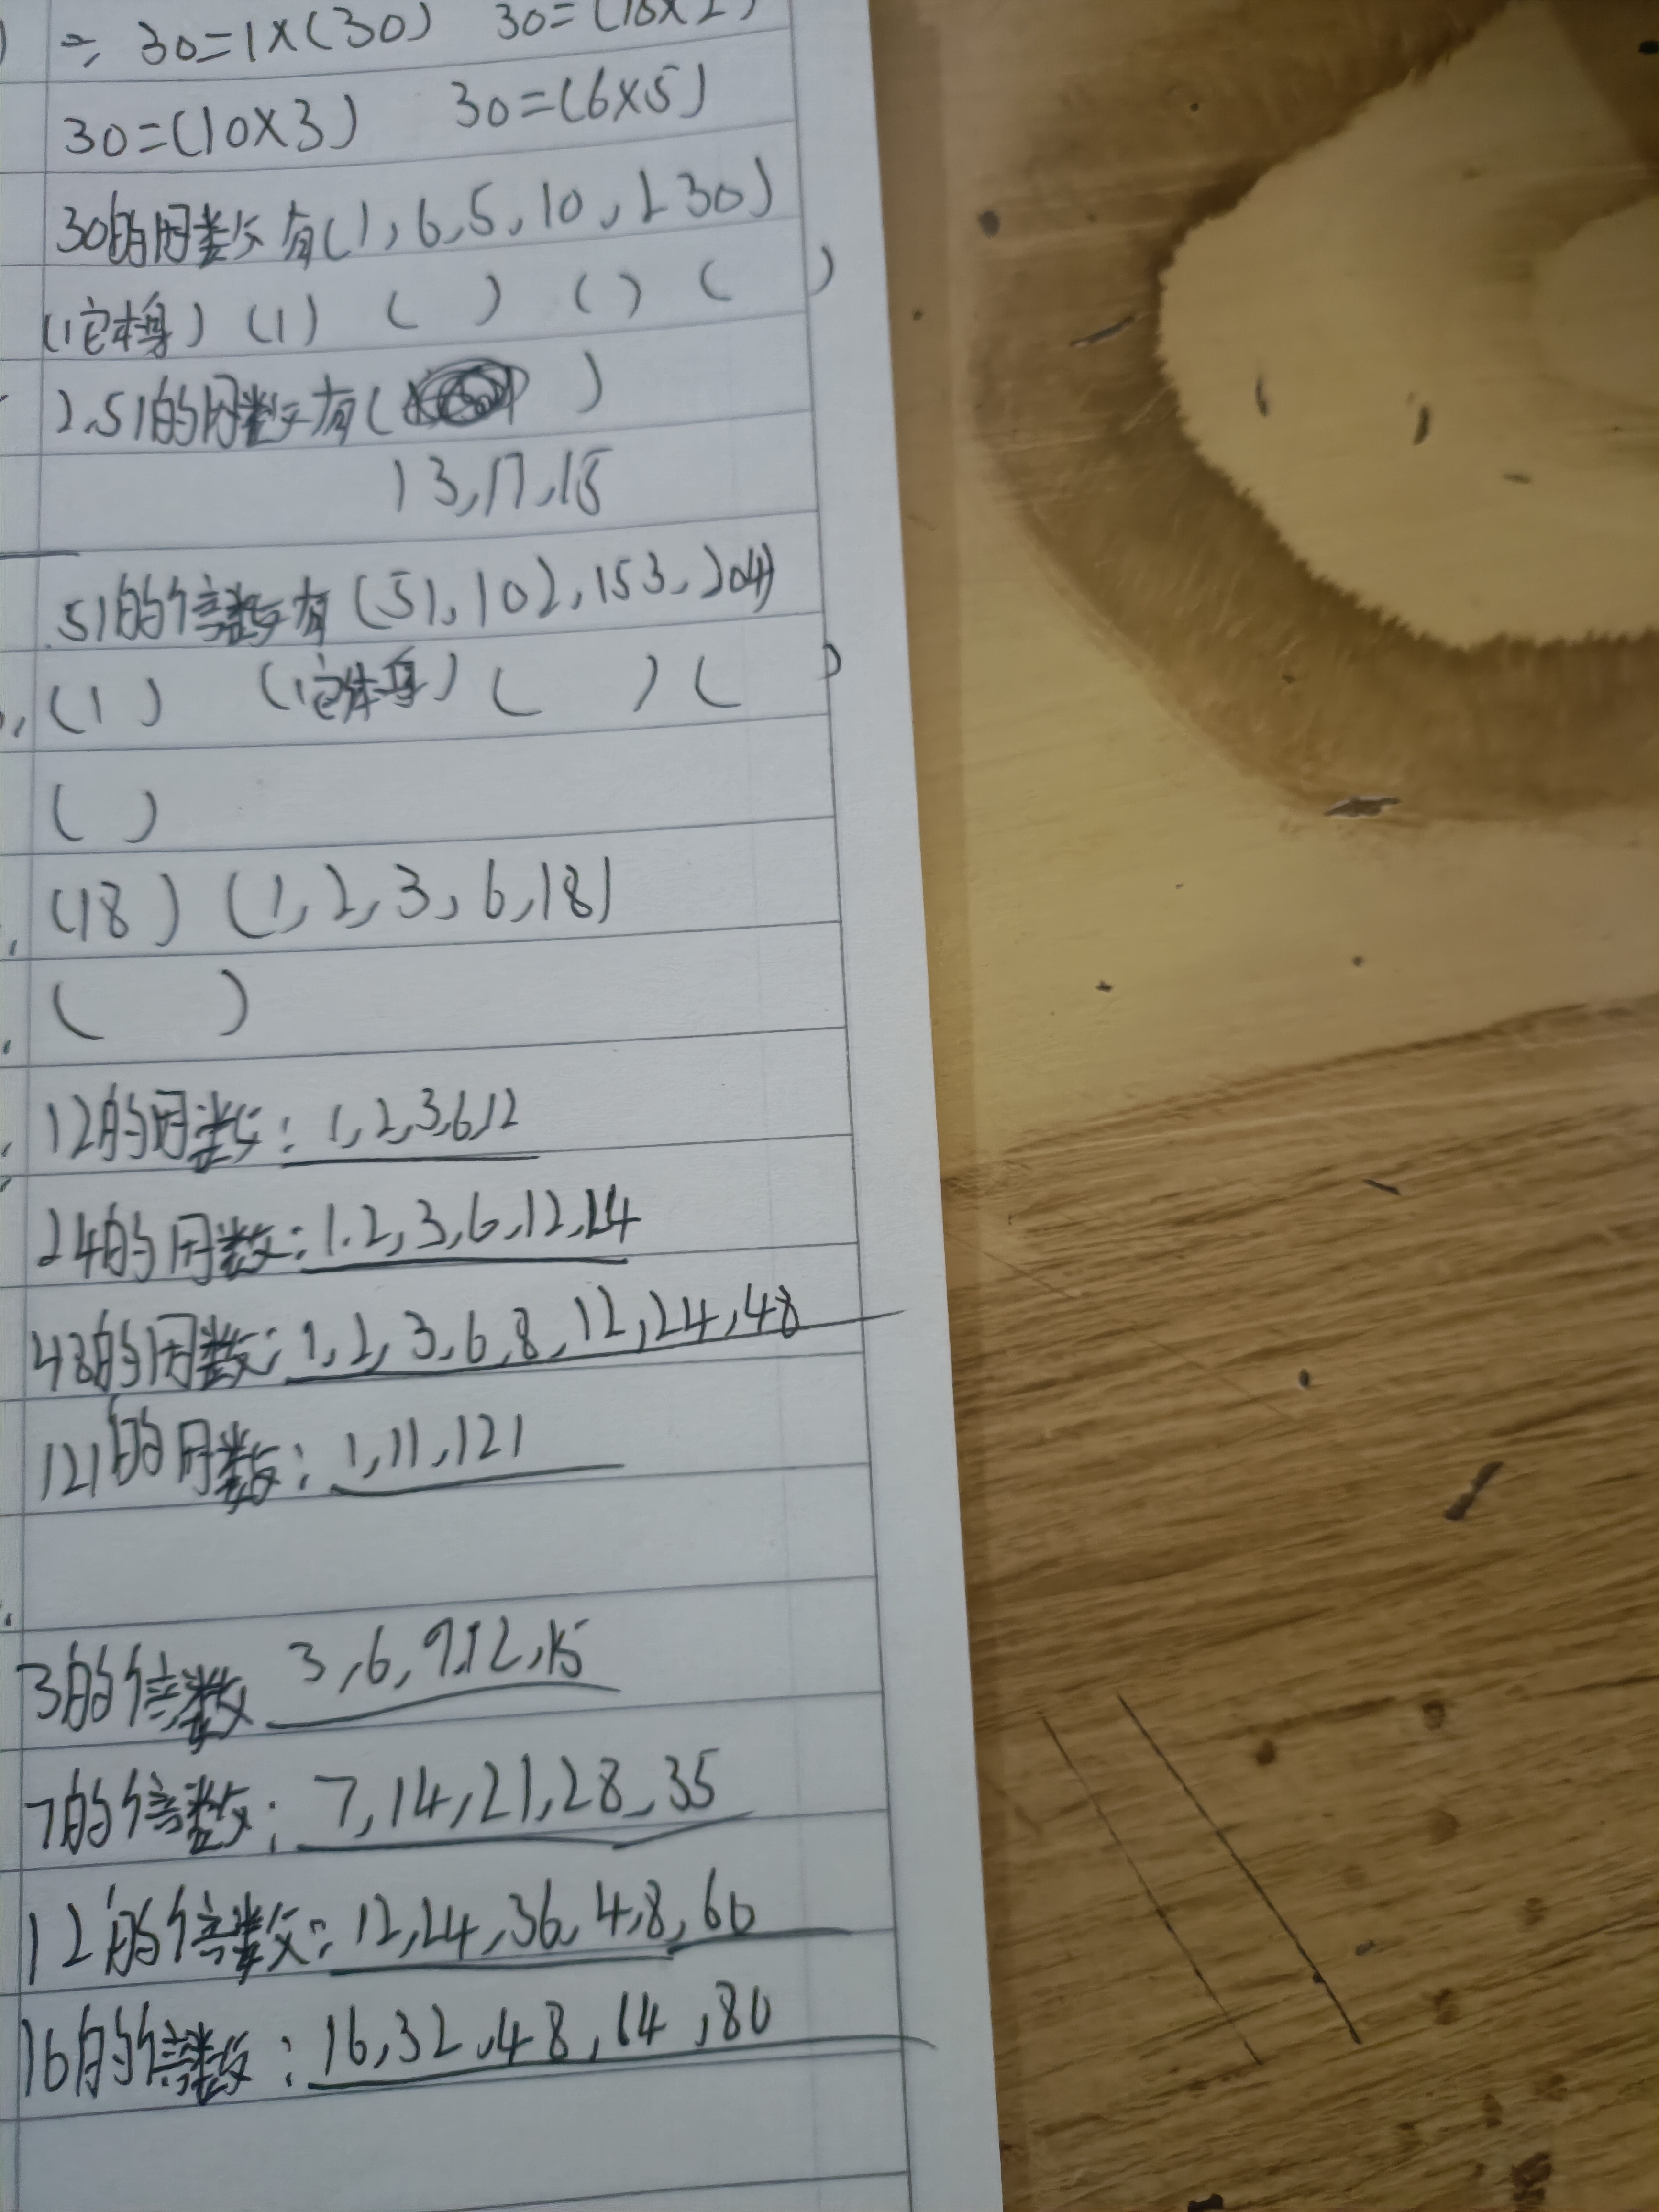 二、30=1×(30) 30=(15×2)
30=(10×3) 30=(6×5)
30的因数有(1,6,5,10,2 30)
(它本身) (1) ( ) ( ) ( )
2.51的因数有( )
13,17,15
51的倍数有(51,102,153,204)
(1) (它本身) ( ) ( )
( )
(18) (1,2,3,6,18)
( )
12的因数:1,2,3,6,12
24的因数:1.2,3,6,12,24
48的因数:1,2,3,6,8,12,24,48
121的因数:1,11,121
3的倍数 3,6,9,12,15
7的倍数:7,14,21,28,35
12的倍数:12,24,36,48,60
16的倍数:16,32,48,64,80